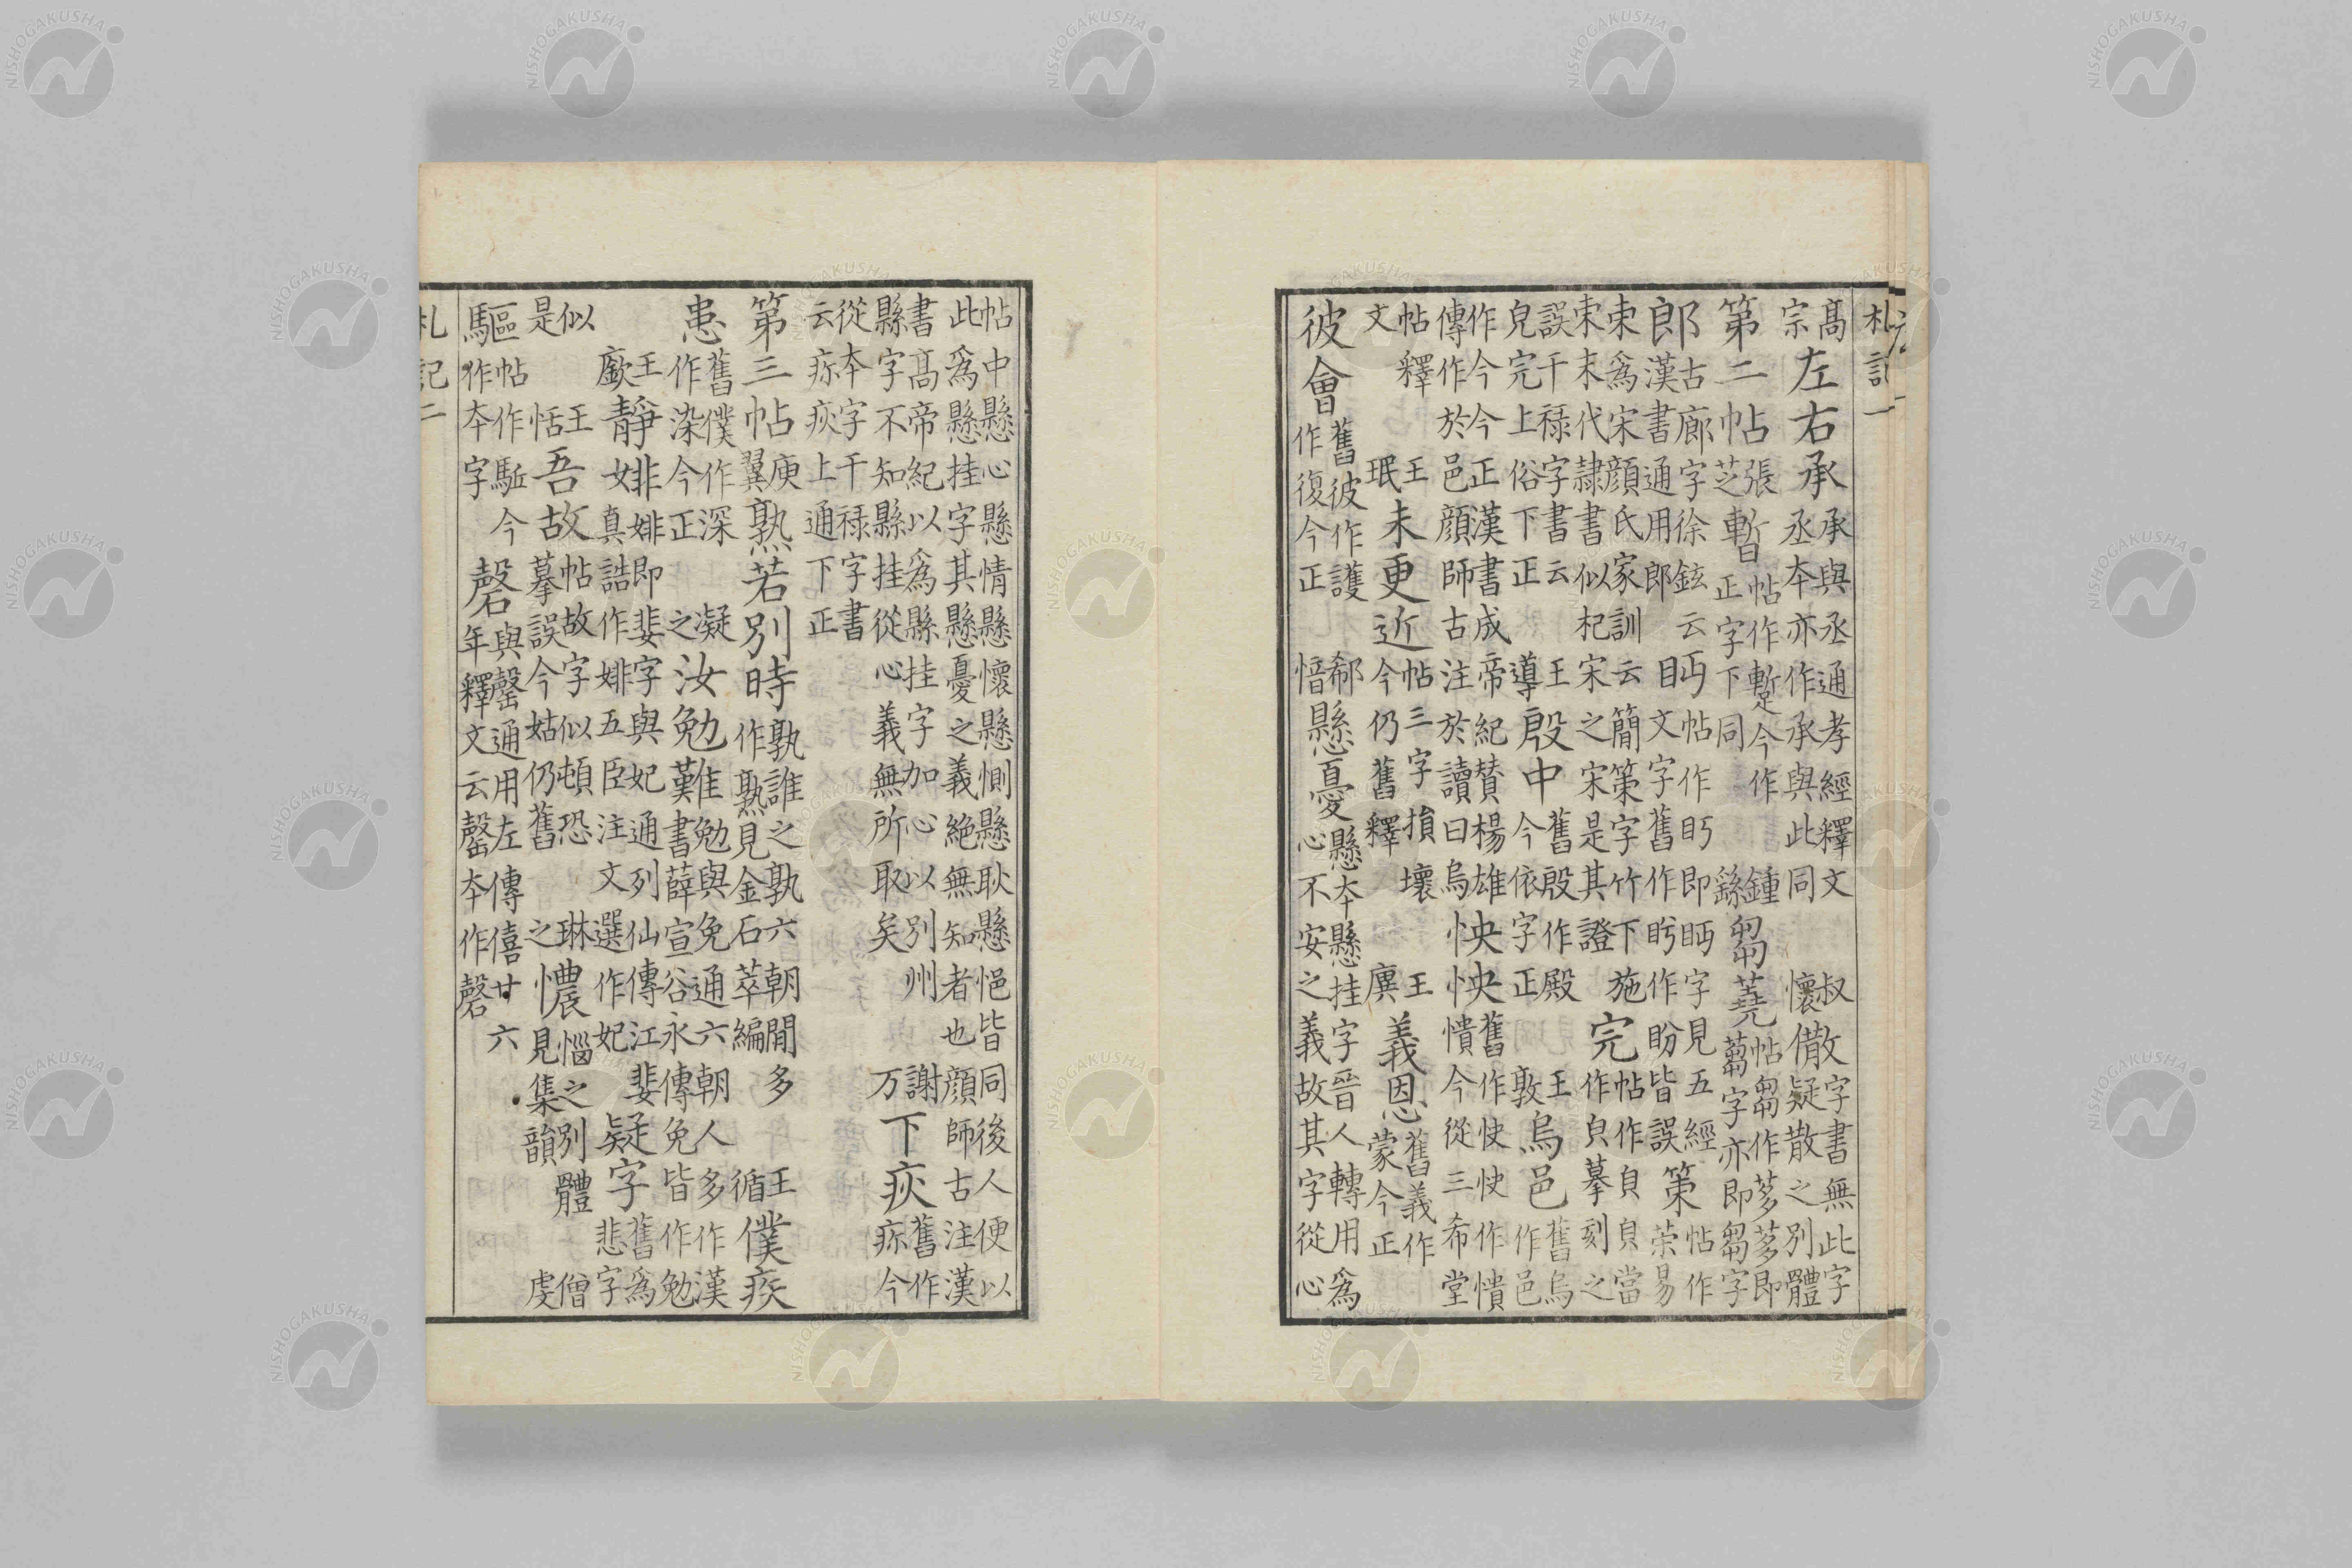 札記一
高宗左右承承與丞通孝經釋文
丞本亦作承與此同叔懷㪚字書無此字
疑散之別體
第二帖張芝暫帖作蹔今作
正字下同鍾繇芻蕘帖芻作茤茤即
蒭字亦即芻字
郎古廊字徐鉉云
漢書通用郎眄帖作盯即眄字見五經
文字舊作盻作盼皆誤策帖作
荣易
朿爲宋顏氏家訓云簡策字竹下施
朿末代隷書似杞宋之宋是其證完帖作貟貟當
作皃摹刻之
誤干禄字書云
皃完上俗下正王導殷中舊殷作殿
今依字正王敦烏邑舊烏
作邑
作今今正漢書成帝紀賛楊雄
傳作於邑顔師古注於讀曰烏怏怏舊作怏怏作憒
憒今從三希堂
帖釋
文王珉未更近帖三字損壞
今仍舊釋王廙義恩舊義作
蒙今正
彼會舊彼作護
作復今正郗愔懸憂懸本懸挂字晉人轉用爲
心不安之義故其字從心
帖中懸心懸情懸懷懸惻懸耿懸悒皆同後人便以
此爲懸挂字其懸憂之義絶無知者也顔師古注漢
書高帝紀以爲縣挂字加心以別州
縣字不知縣挂從心義無所取矣謝万下疢舊作
㾓今
從本字干禄字書
云㾓疢上通下正
第三帖庾翼熟若別時孰誰之孰六朝閒多
作熟見金石萃編王循僕疾
患舊僕作深
作染今正凝之汝勉難勉與免通六朝人多作漢
書薛宣谷永傳免皆作勉
王廞靜婔婔即婓字與妃通列仙傳江婓
真誥作婔五臣注文選作妃疑字舊爲
悲字
似
是王恬吾故帖故字似頓恐
摹誤今姑仍舊琳之憹惱之別體
見集韻僧虔
驅帖作駈今
作本字磬與罄通用左傳僖廿六
年釋文云罄本作磬
札記二